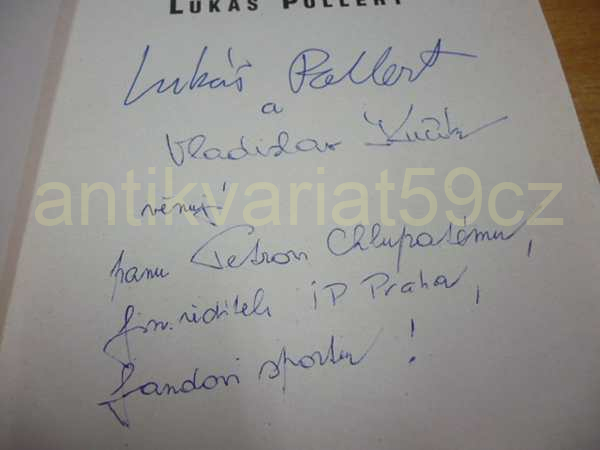 LUKÁŠ POLLERT
Lukáš Pollert
a
Vladislav Kučík
věnují
antikvariat59cz
panu Petrovi Chlupatému,
fin. řediteli IP Praha,
fandovi sportu!